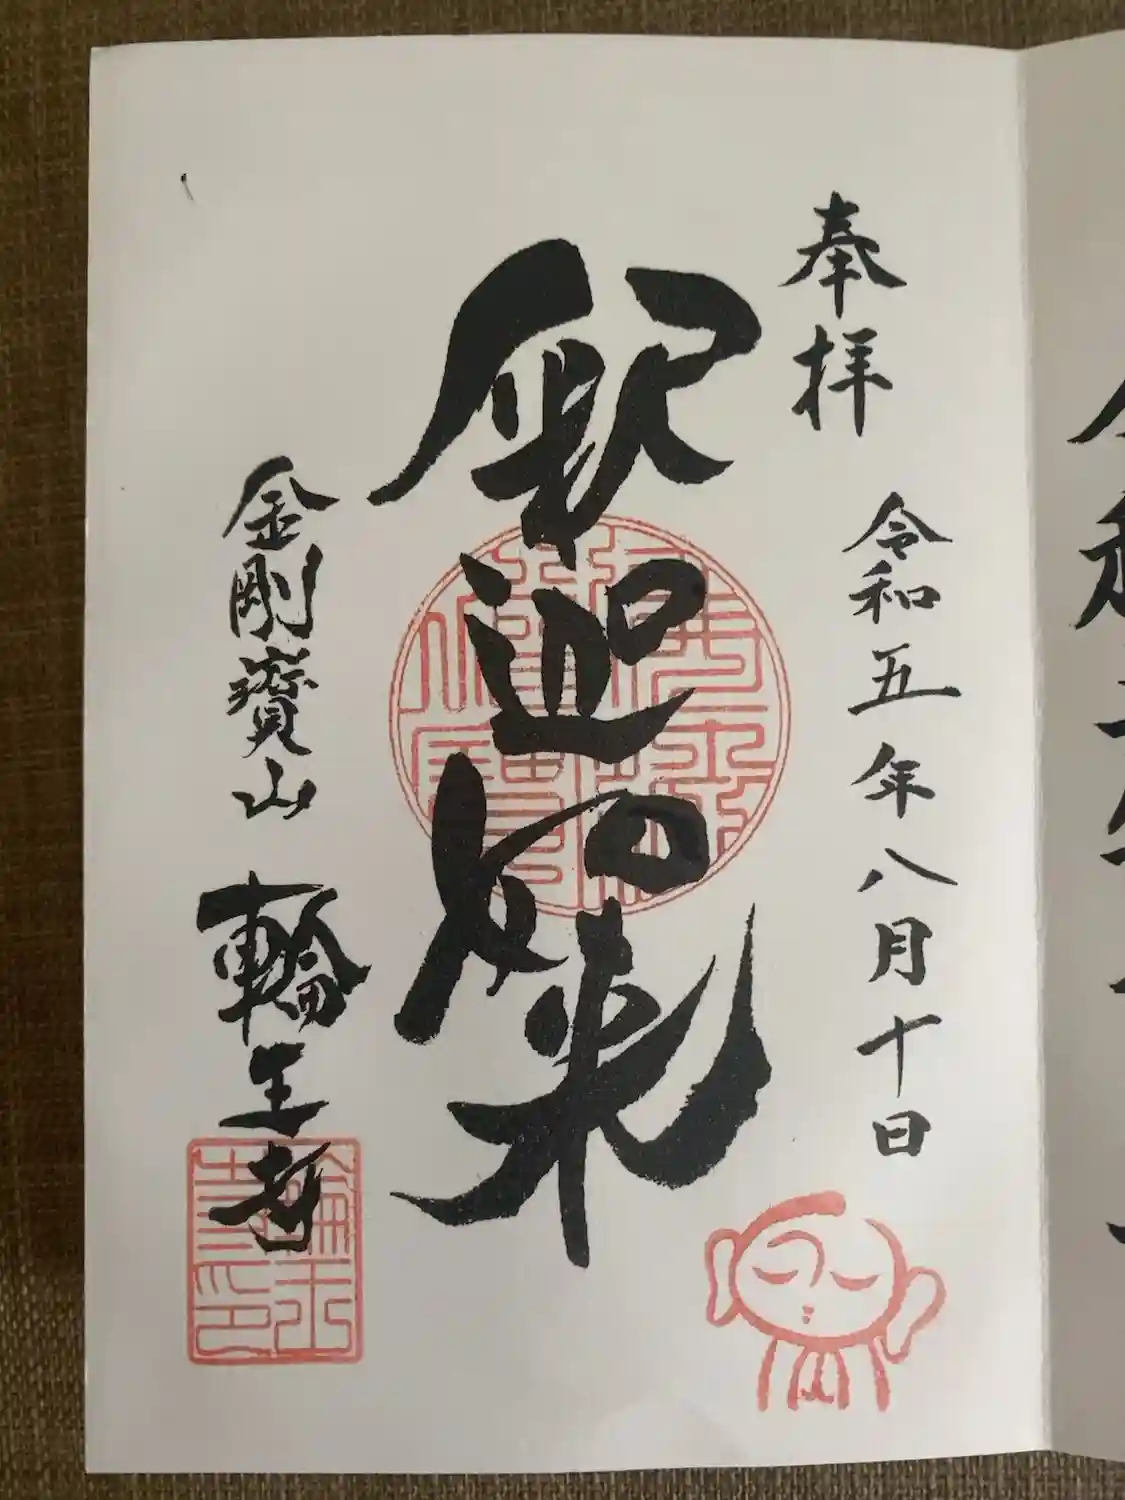 奉拝
令和五年八月十日
釈迦如来
金剛寶山
輪王寺